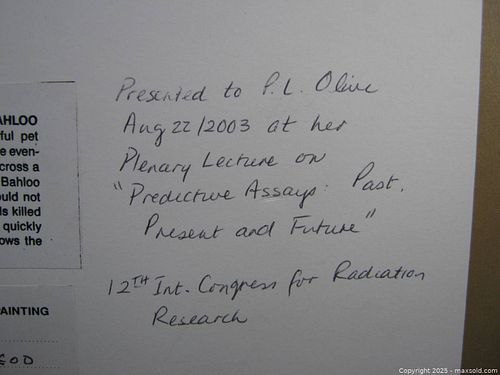 AHLOO
ful pet
e even-
cross a
Bahloo
ould not
ls killed
quickly
ows the
AINTING
EOD
Presented to P.L. Olive
Aug 22/2003 at her
Plenary Lecture on
"Predictive Assays: Past,
Present and Future"
12TH Int. Congress for Radiation
Research
Copyright 2025 - maxsold.com